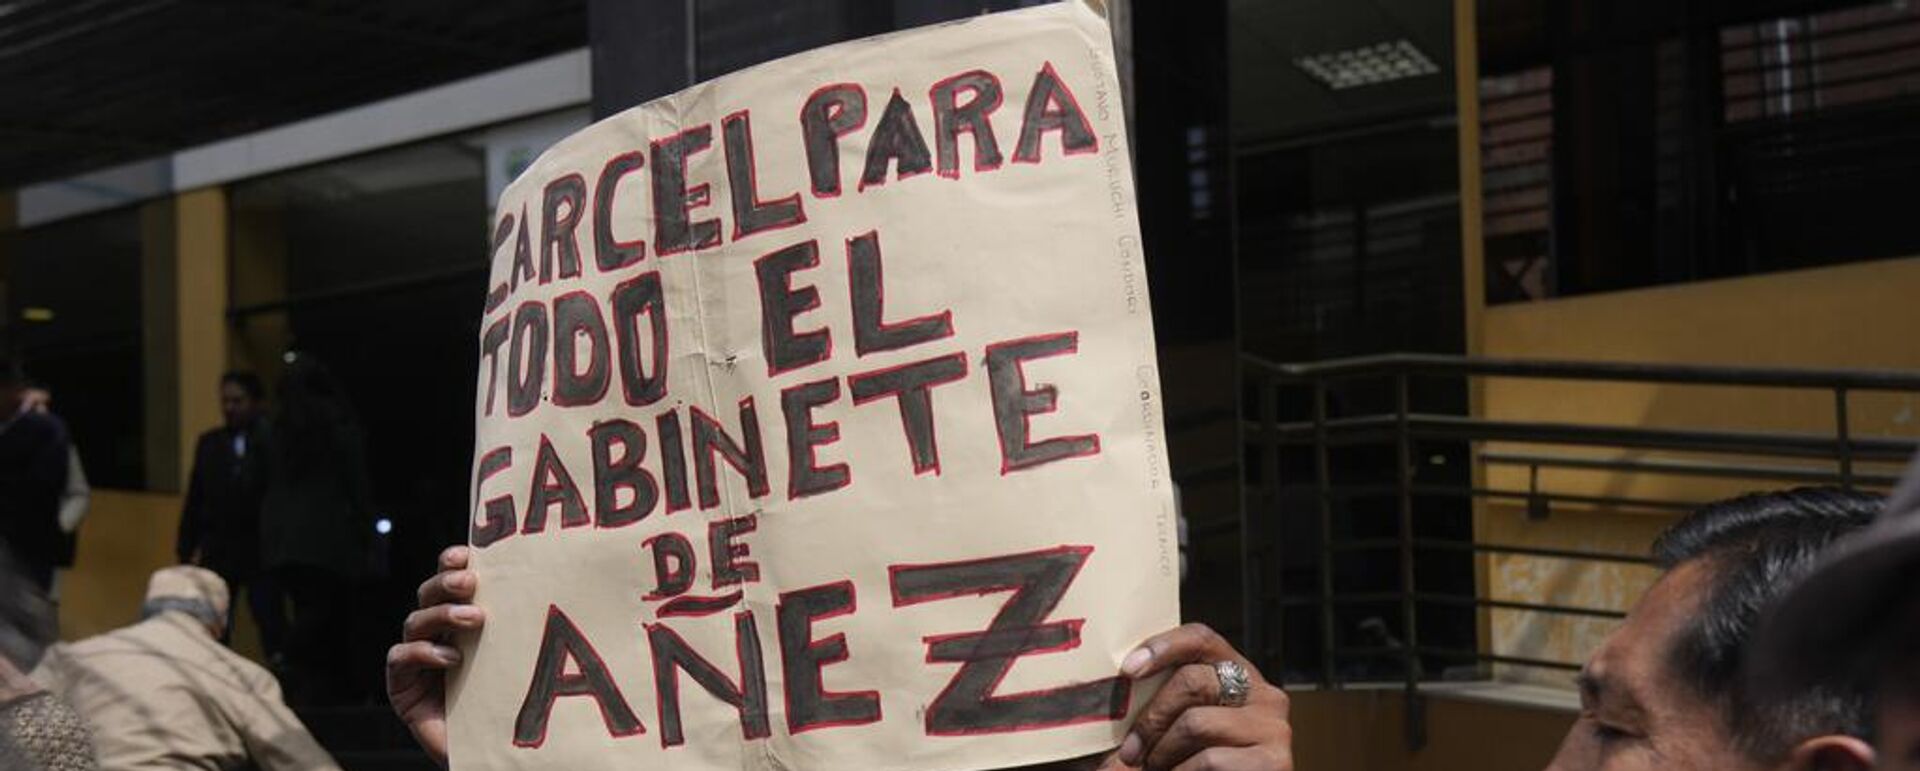 CARCEL PARA
TODO EL
GABINETE
DE
AÑEZ
GUSTAVO MURUCHI CONDORI COORDINADOR TECNICO